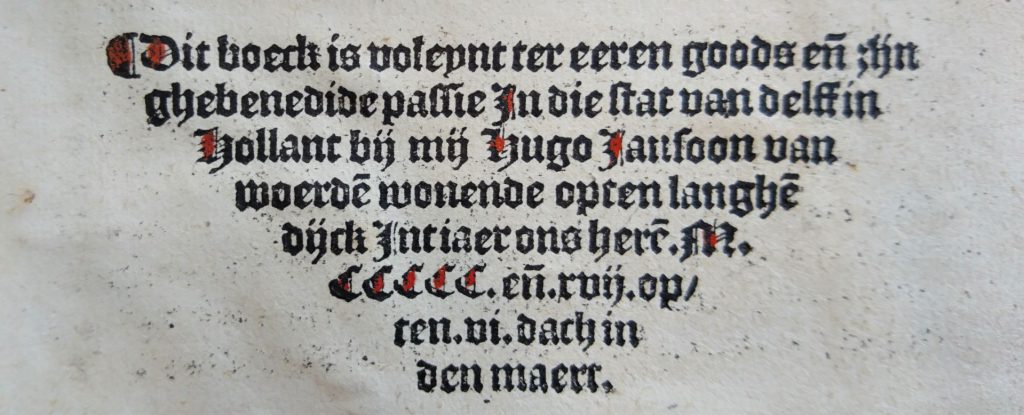 ¶Dit boeck is voleynt ter eeren goods en̄ zijn
ghebenedide passie In die stat van delff in
Hollant bij mij Hugo Jansoon van
woerdē wonende opten langhē
dijck Int iaer ons herē. M.
CCCCC. en̄. xvij. op/
ten. vi. dach in
den maert.